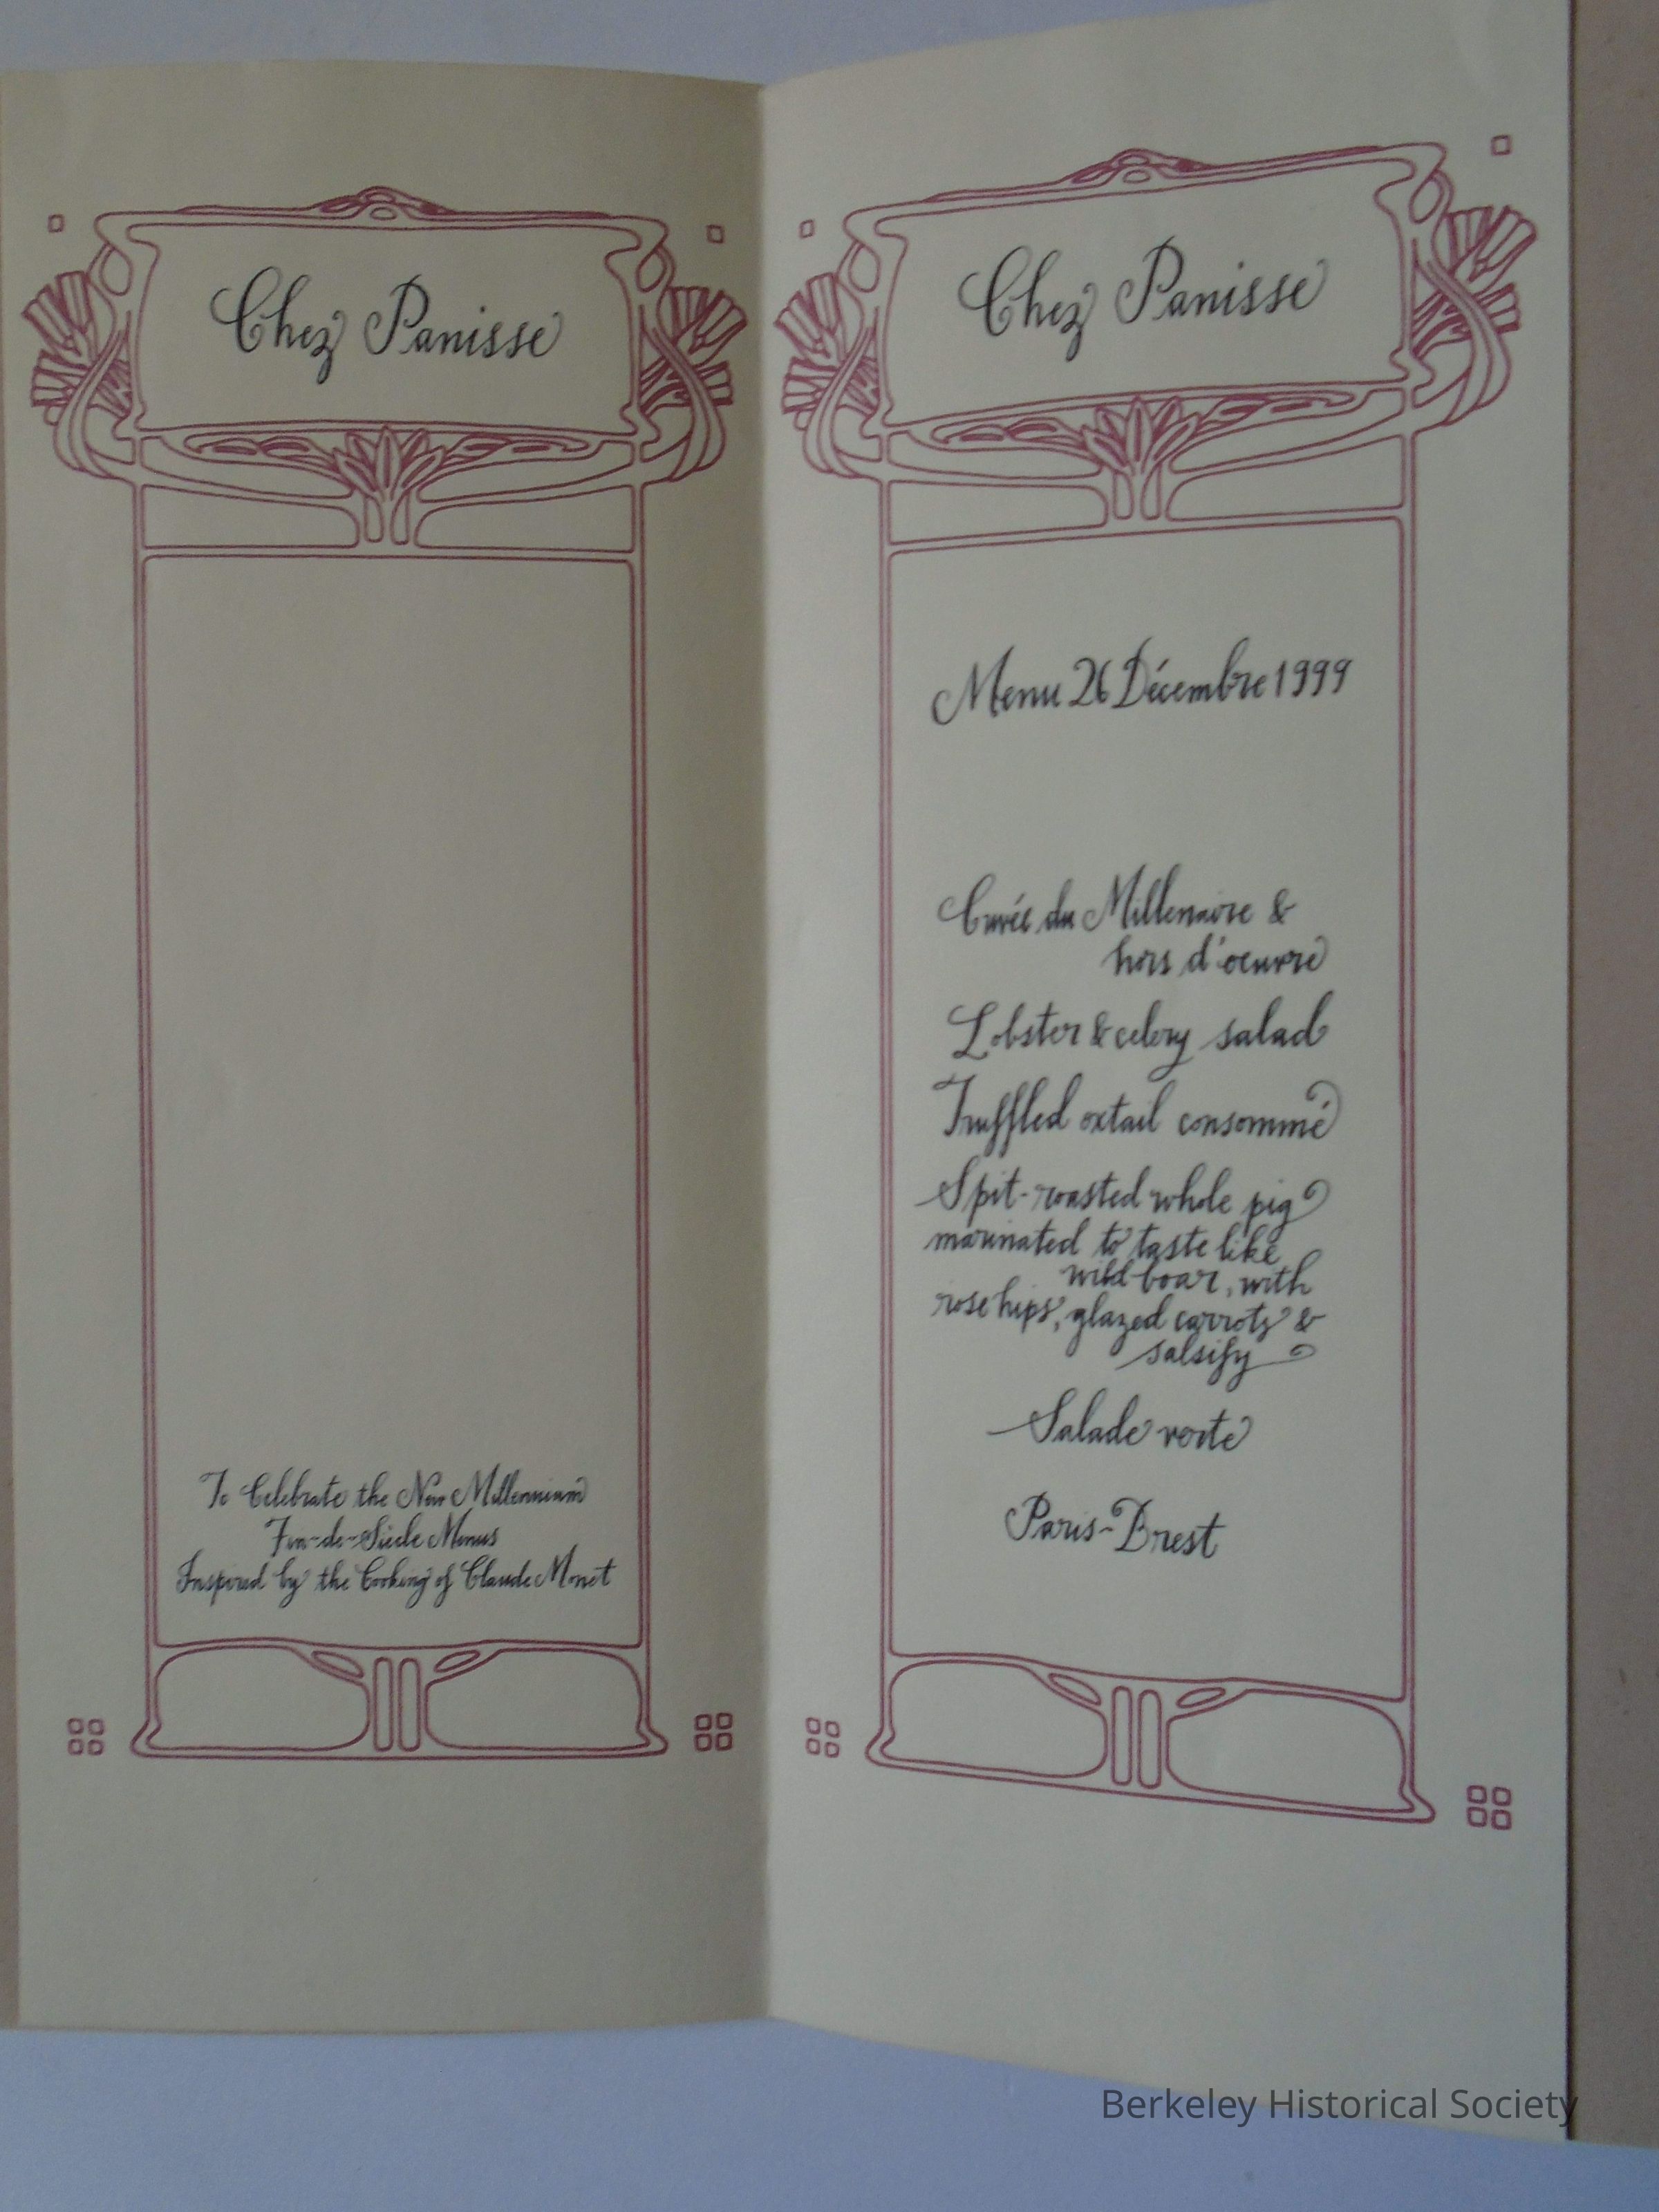 Chez Panisse
To Celebrate the New Millennium
Fin-de-Siècle Menus
Inspired by the Cooking of Claude Monet
Chez Panisse
Menu 26 Décembre 1999
Cuvée du Millenaire &
hors d'oeuvre
Lobster & celery salad
Truffled oxtail consommé
Spit-roasted whole pig
marinated to taste like
wild boar, with
rose hips, glazed carrots &
salsify
Salade verte
Paris-Brest
Berkeley Historical Society